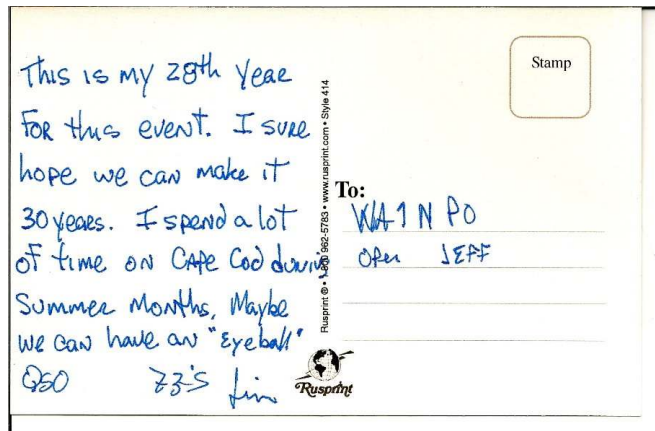 This is my 28th Year
For this event. I sure
hope we can make it
30 years. I spend a lot
of time on Cape Cod during
Summer Months, Maybe
we can have an "Eyeball"
QSO 73's Jim
Rusprint ® • 1-800 962-5783 • www.rusprint.com • Style 414
Stamp
To:
WA1NPO
Oper JEFF
Rusprint